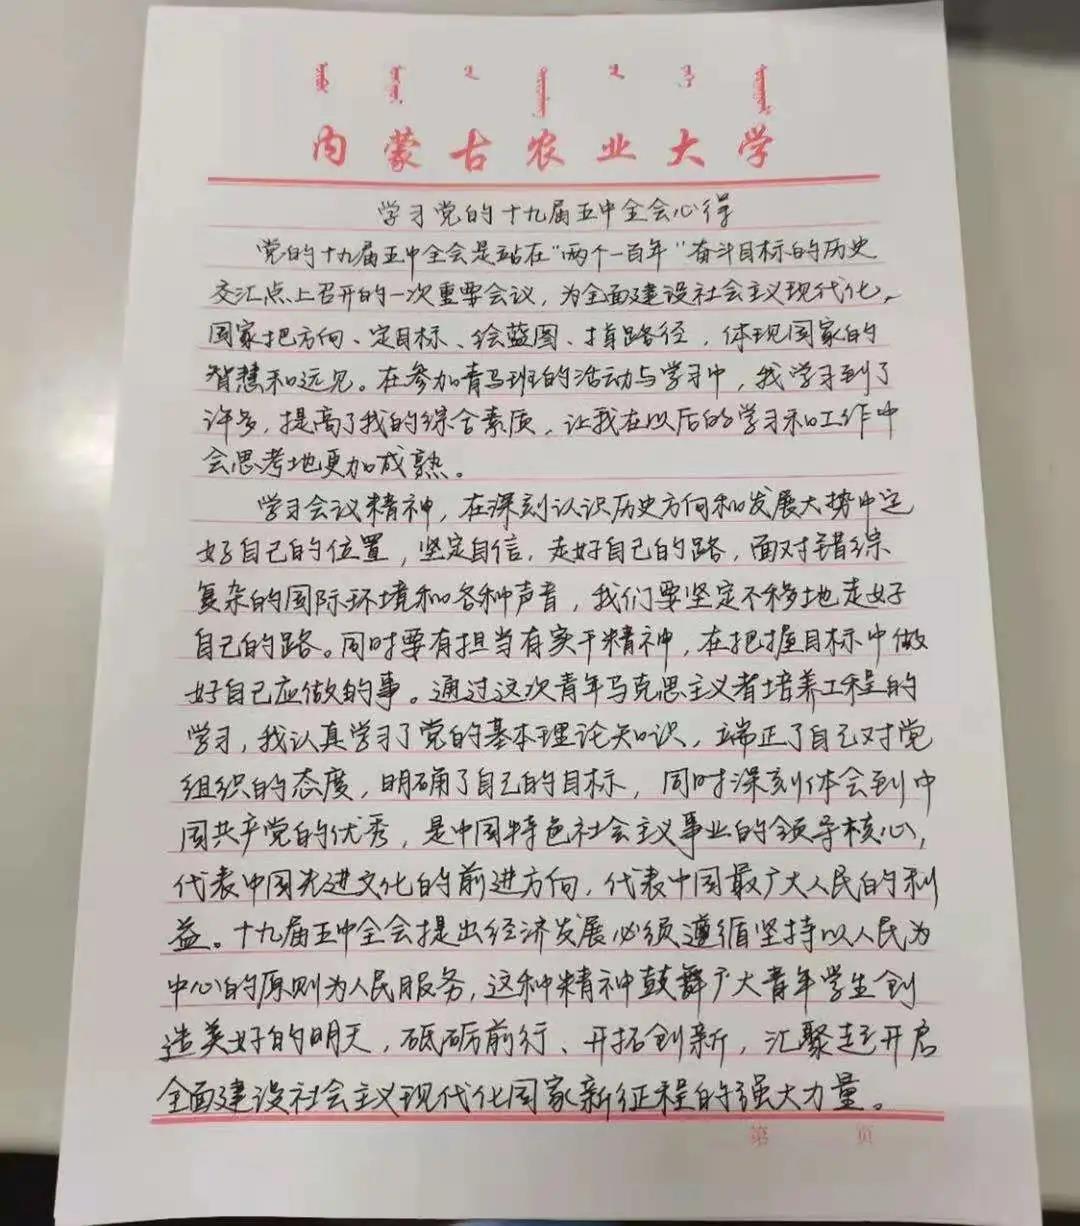 内蒙古农业大学
学习党的十九届五中全会心得
党的十九届五中全会是站在“两个一百年”奋斗目标的历史
交汇点上召开的一次重要会议，为全面建设社会主义现代化
国家把方向、定目标、绘蓝图、指路径，体现国家的
智慧和远见。在参加青马班的活动与学习中，我学习到了
许多，提高了我的综合素质，让我在以后的学习和工作中
会思考地更加成熟。
学习会议精神，在深刻认识历史方向和发展大势中定
好自己的位置，坚定自信，走好自己的路，面对错综
复杂的国际环境和各种声音，我们要坚定不移地走好
自己的路。同时要有担当有实干精神，在把握目标中做
好自己应做的事。通过这次青年马克思主义者培养工程的
学习，我认真学习了党的基本理论知识，端正了自己对党
组织的态度，明确了自己的目标，同时深刻体会到中
国共产党的优秀，是中国特色社会主义事业的领导核心，
代表中国先进文化的前进方向，代表中国最广大人民的利
益。十九届五中全会提出经济发展必须遵循坚持以人民为
中心的原则为人民服务，这种精神鼓舞广大青年学生创
造美好的明天，砥砺前行、开拓创新，汇聚起开启
全面建设社会主义现代化国家新征程的强大力量。
第 页